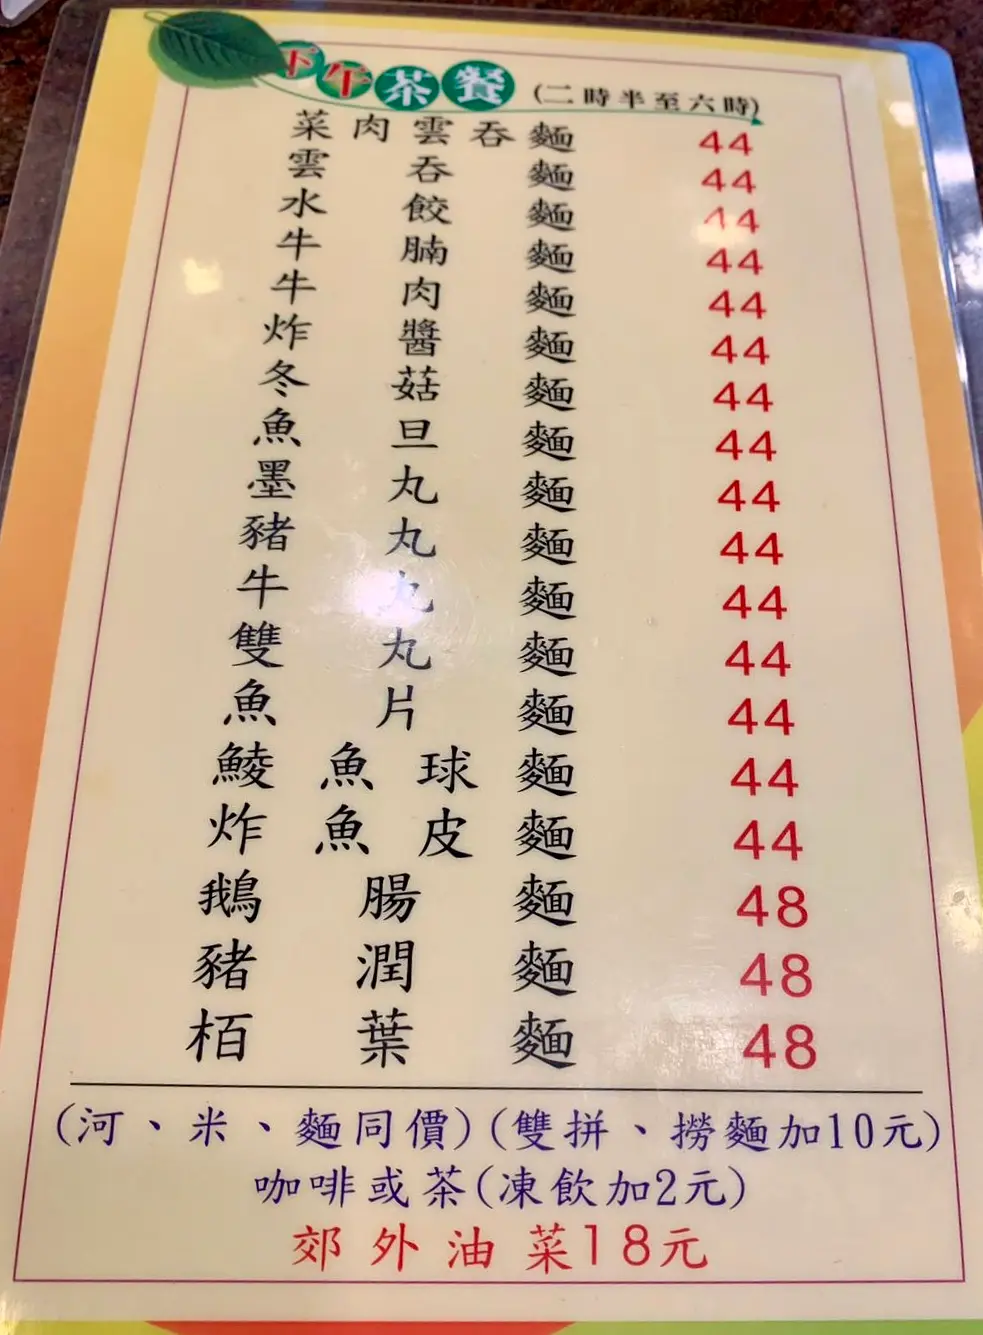 下午茶餐 (二時半至六時)
菜肉雲吞麵 44
雲吞麵 44
水餃麵 44
牛腩麵 44
牛肉麵 44
炸醬麵 44
冬菇麵 44
魚旦麵 44
墨丸麵 44
豬丸麵 44
牛丸麵 44
雙丸麵 44
魚片麵 44
鯪魚球麵 44
炸魚皮麵 44
鵝腸麵 48
豬潤麵 48
栢葉麵 48
(河、米、麵同價)(雙拼、撈麵加10元)
咖啡或茶(凍飲加2元)
郊外油菜18元